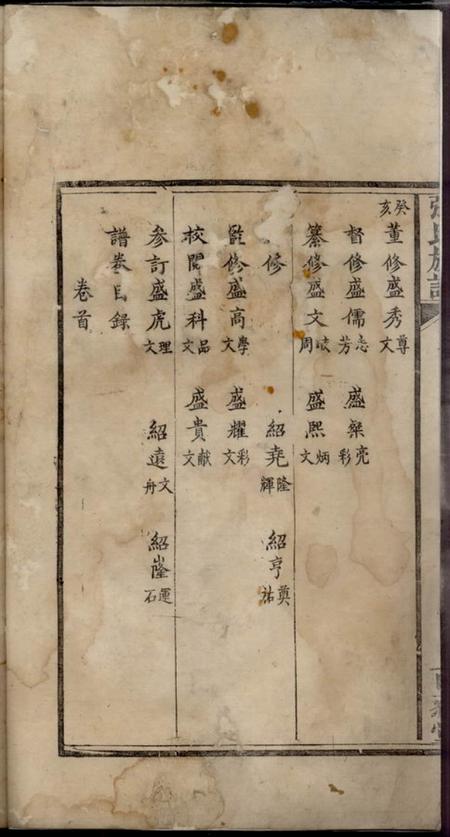 癸亥董修盛秀尊文
督修盛儒志芳 盛粲亮彩
纂修盛文岐周 盛熙炳文
修 紹堯隆輝 紹亨奠祐
監修盛高學文 盛耀彩文
校閱盛科品文 盛貴献文
参訂盛虎理文 紹遠文舟 紹隆運石
譜卷目錄
卷首
張氏族譜